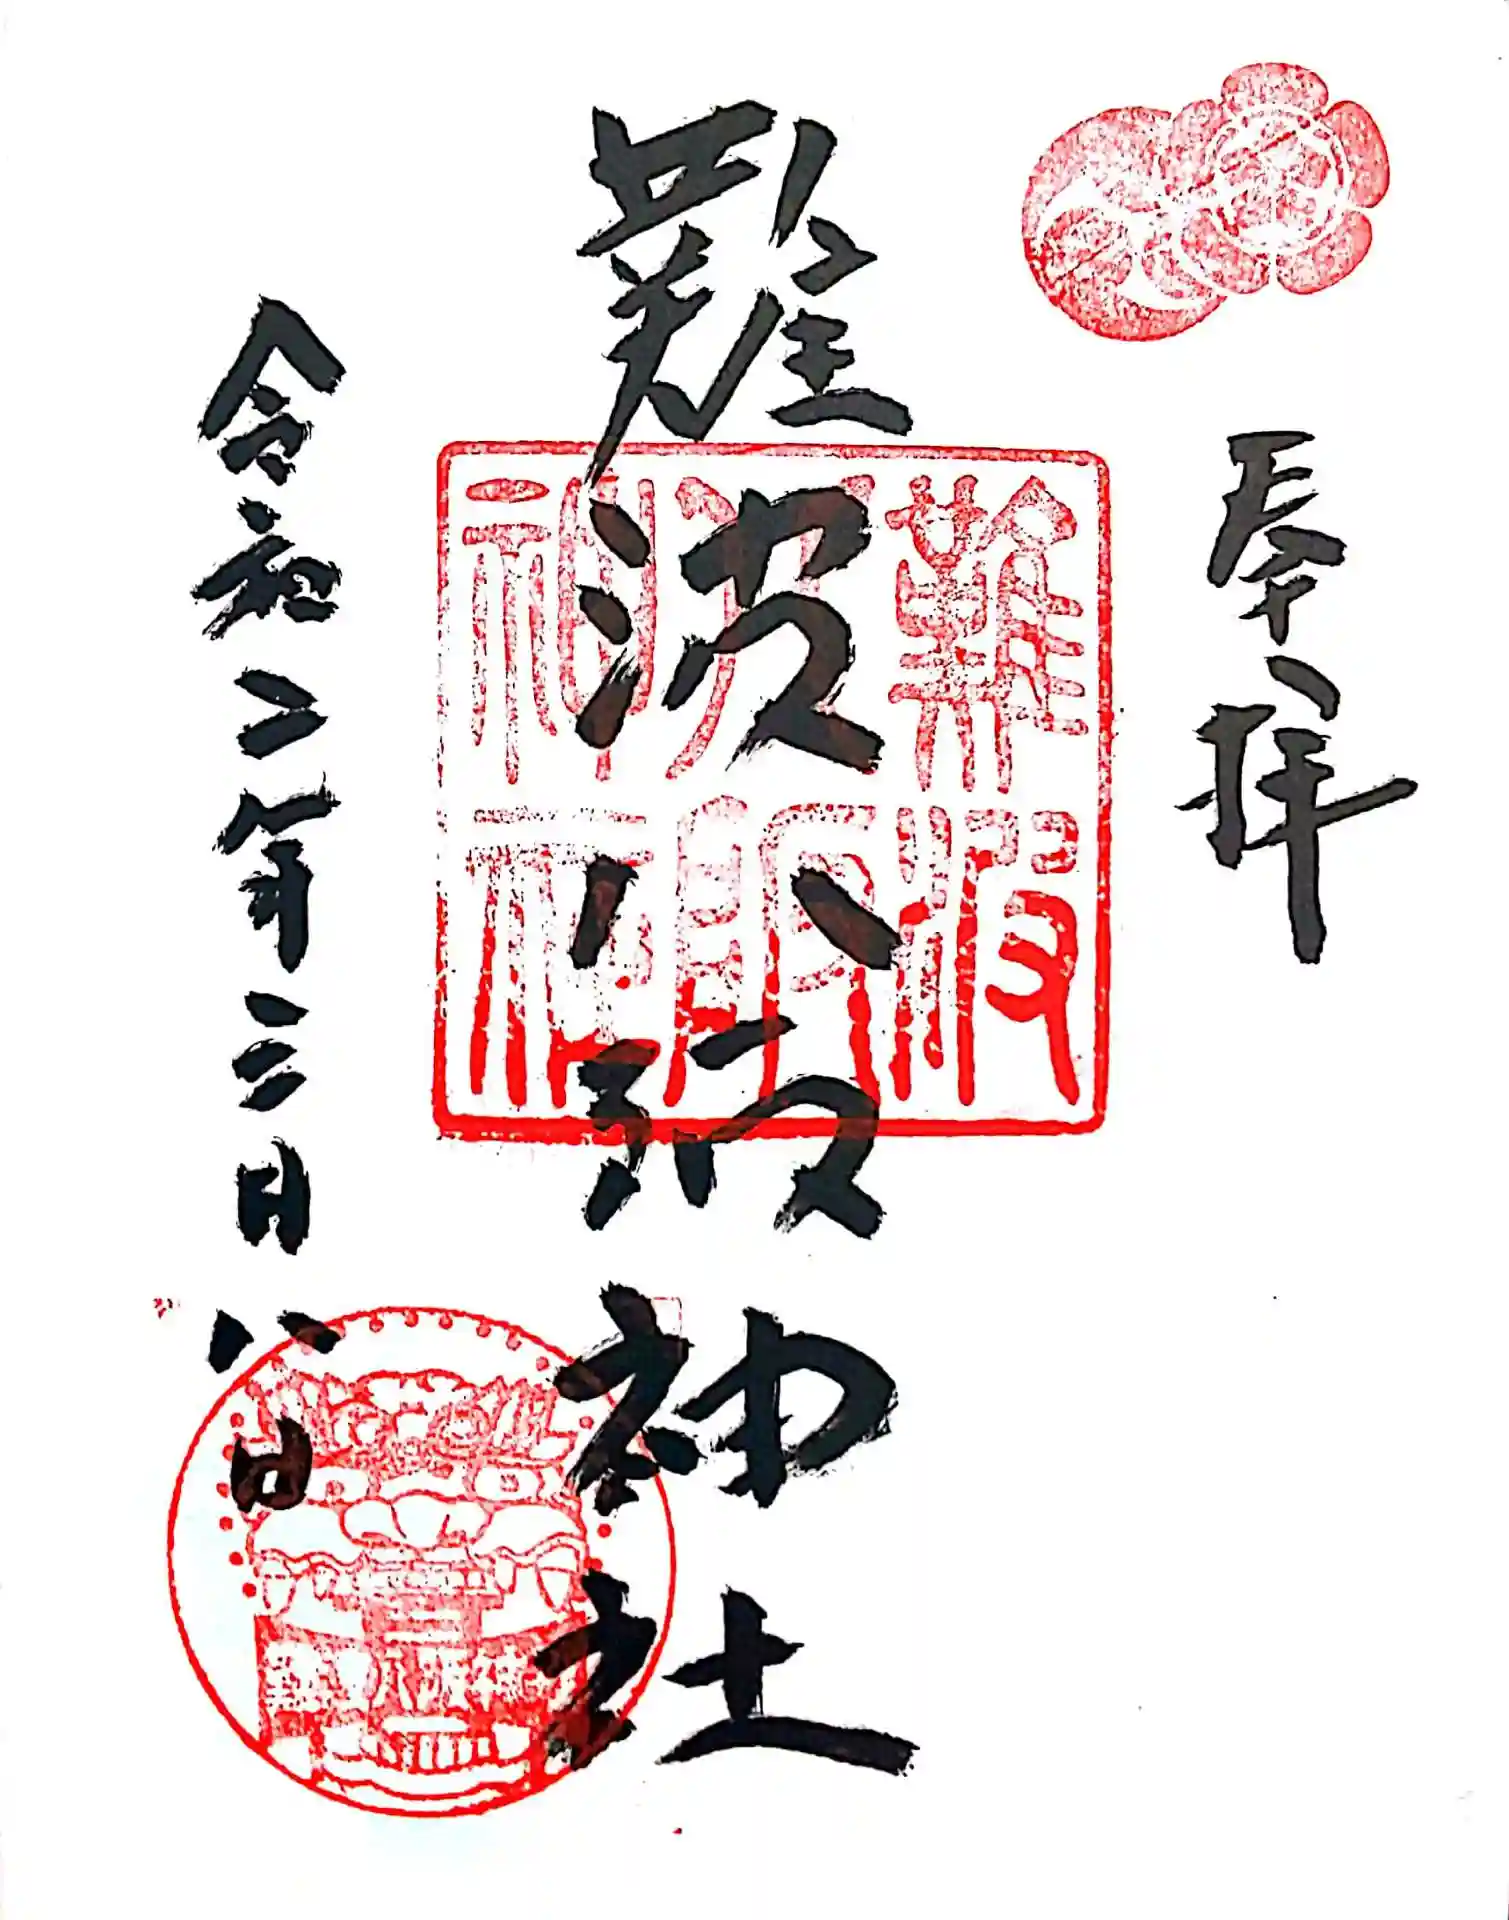 奉拝
難波八阪神社
令和二年三月八日
難波八阪神社